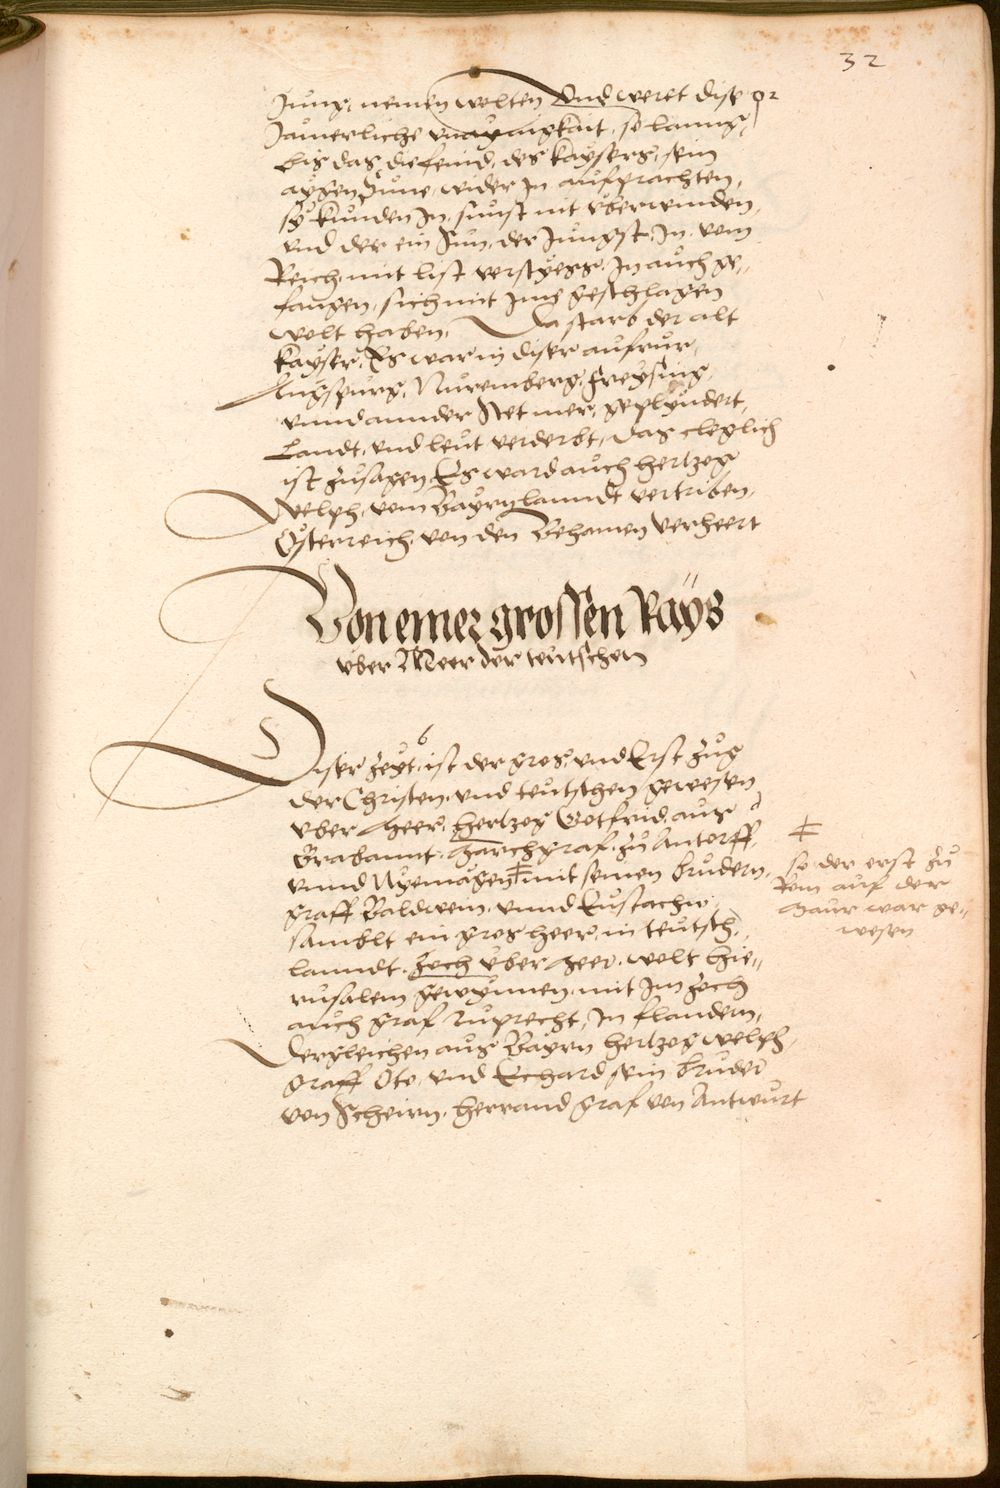 32
Jung, nemen wolten Und weret dise
Jamerliche unaynigkait, so lanng,
bis das die feind, des kaysers, sein
aygen Sune, wider In aufprachten,
sy kunden In, sunst nit uberwinden,
und der ein Sun, der Jungst, In, vom
Reich, mit list verstyess, In auch ge„
fangen, sich mit Ime geschlagen
wolt haben, Da starb der alt
kayser, Es war in diser aufrur,
Augspurg, Nuremberg, Freysing,
unnd annder Stet mer, geplundert,
Landt, und leut verderbt, das cleglich
ist zusagen Es ward auch hertzog
Welph, vom Bayrnlanndt vertriben,
Osterreich, von den Behamen verheert
Von einer grossen Rays
uber Meer der teutschen
Diser Zeyt, ist der gros, und Erst Zug
der Christen, und teutschen gewesen
uber Meer, hertzog Gotfrid, aus
Brabannt, Marchgraf, zu Antorff,
unnd Nyemagen ‡ mit seinen brudern,
graff Baldwein, unnd Eustachio,
samblt ein gros heer, in teutsch„
lanndt, Zoch uber Meer, wolt Hie„
rusalem gewynnen, mit Im zoch
auch graf Ruprecht, In flandern,
Dergleichen aus Bayrn hertzog welph,
graff Oto, und Echard sein bruder
von Scheirn, herrand graf von Antwurt
‡
so der erst zu
Rom auf der
Maur war ge„
wesen